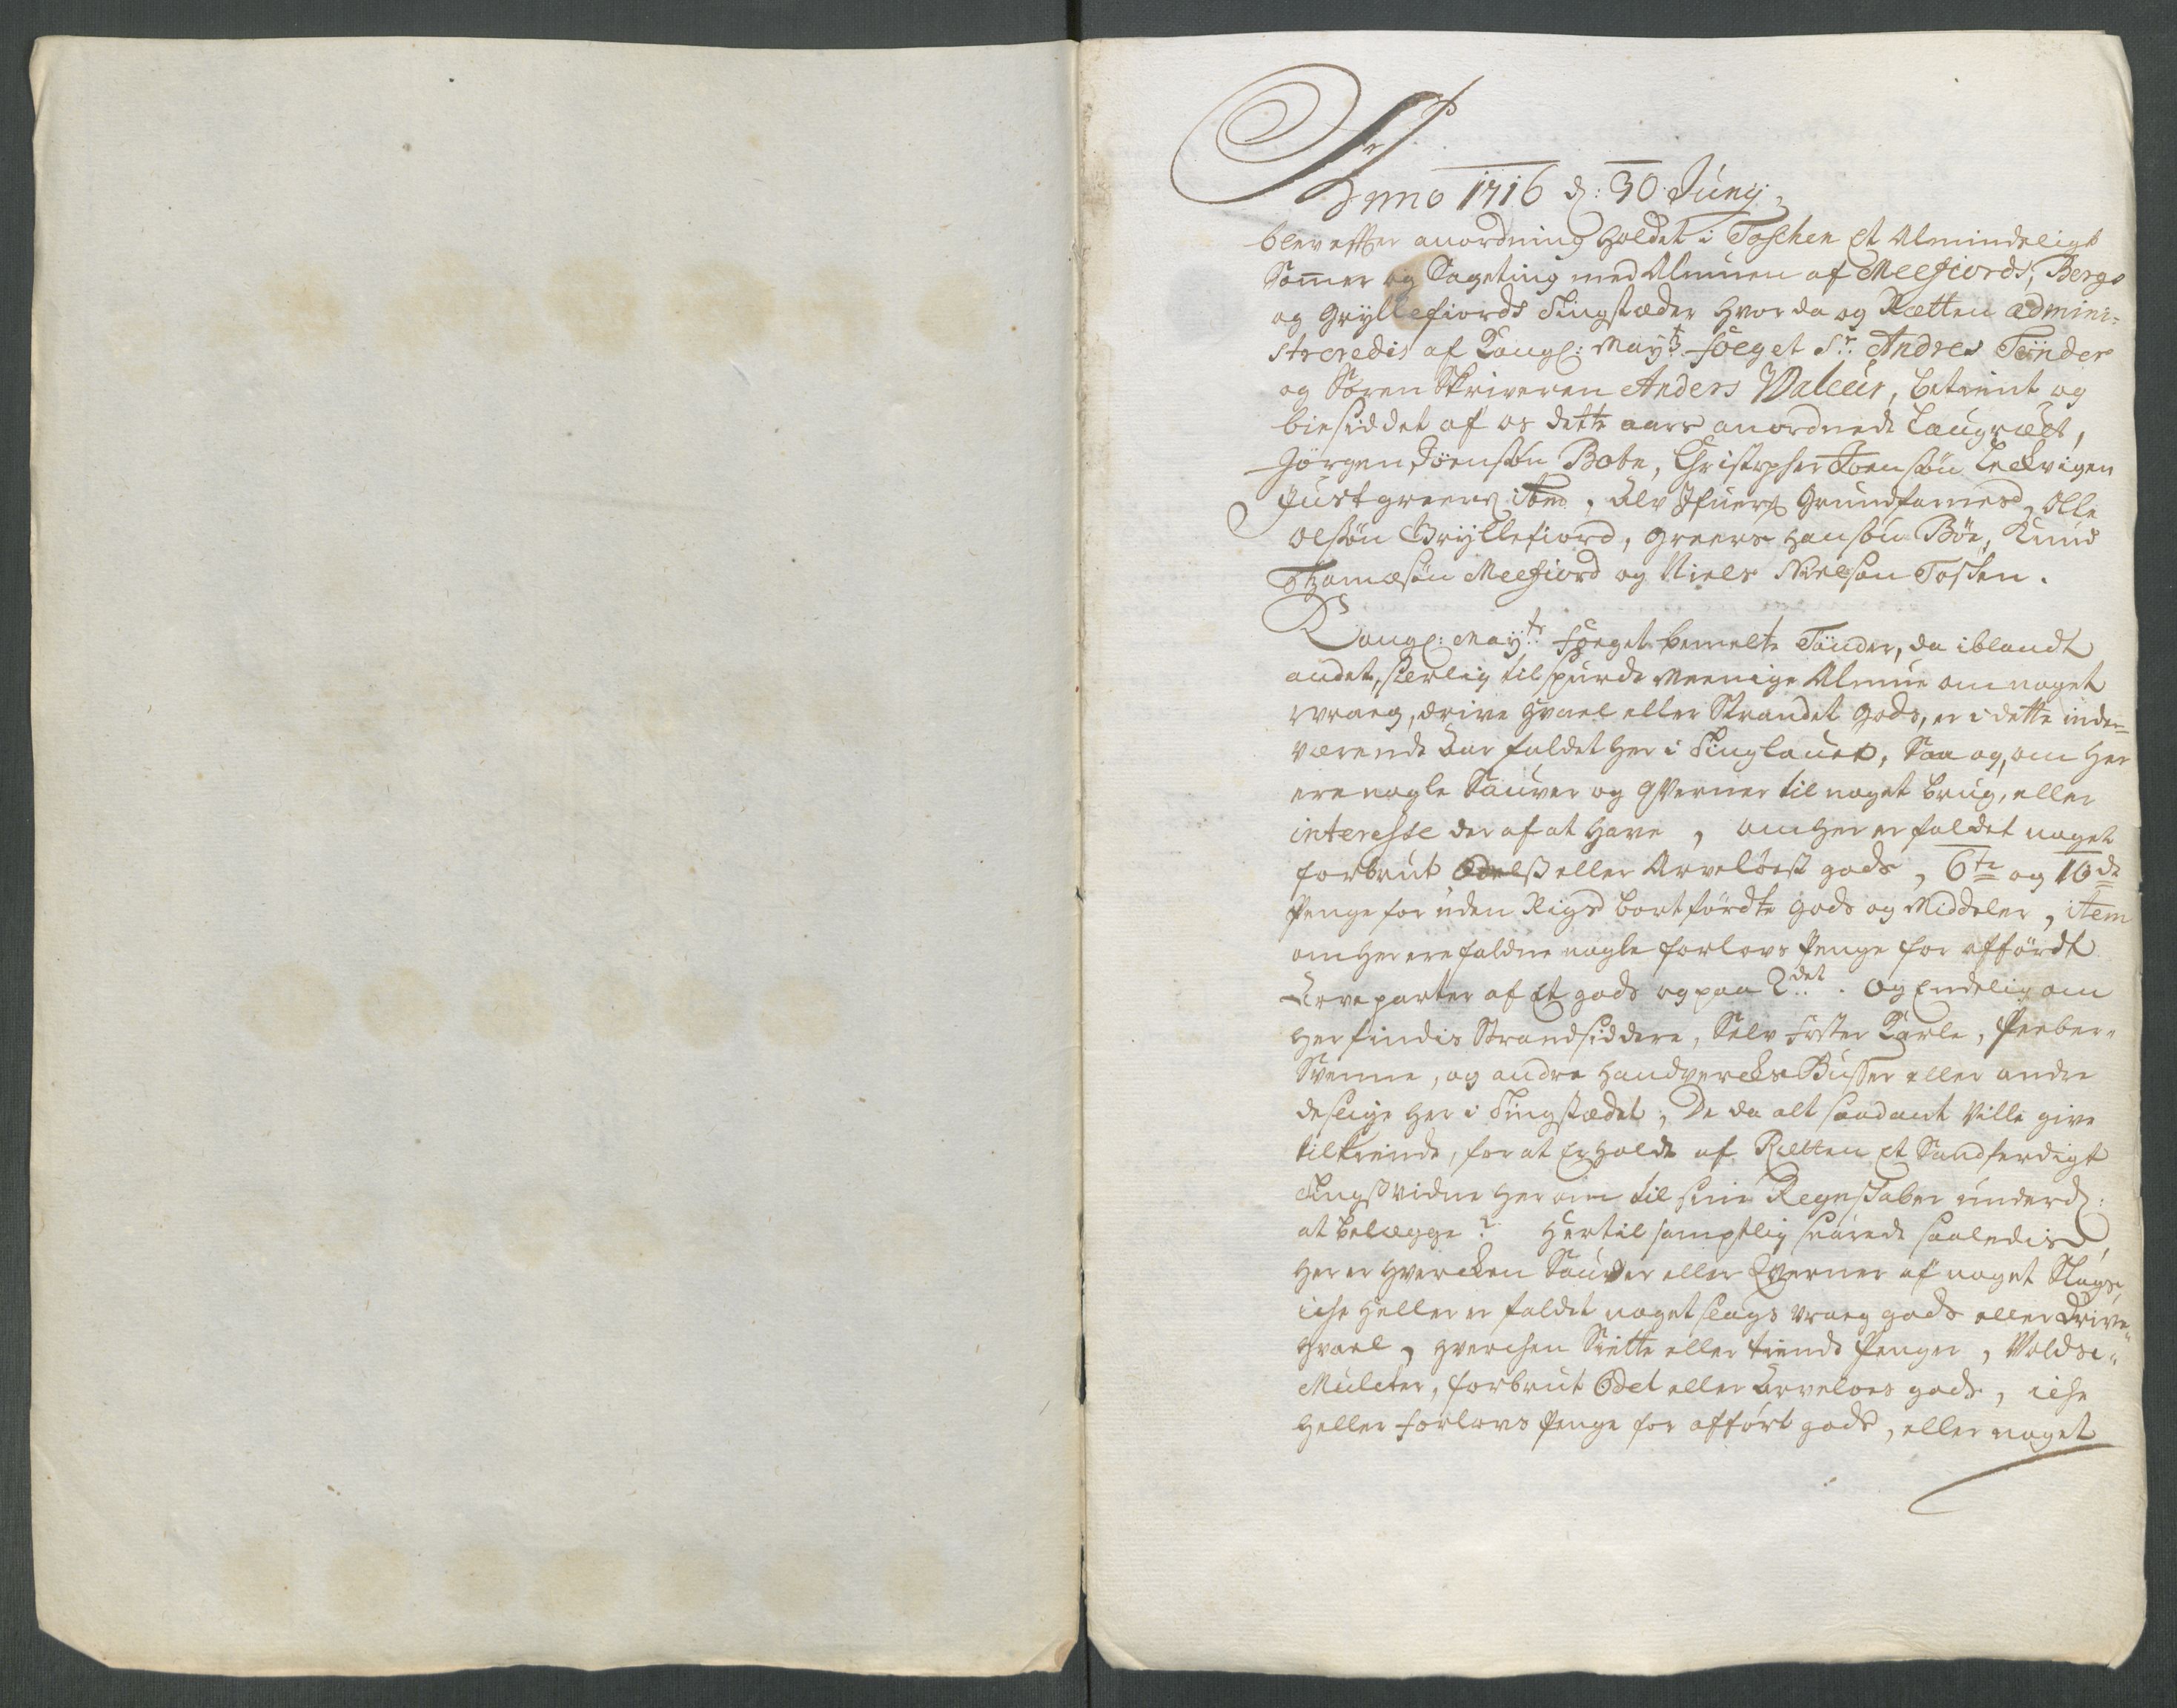 Anno 1716 d: 30 Junij
blev efter anordning holdet i Toschen et Almindeligt
Somer og Sageting med Almuen af Meefiords, Bergs
og Gryllefiords Tingstæder hvor da og Rætten admini-
streredis af Kongl: Mayts foeget Sr Andres Tønder
og Sorenskriveren Anders Valeur, betient og
biesiddet af os dette aars anordnede Laugræt,
Jørgen Joensøn Bote, Christopher Joensøn Leckvigen
Just greers ibm, Elv Ifuers Grundfarnes, Olle
Olsøn Gryllefiord, greers Hansøn Bøe, Knud
Thomæsøn Meefiord og Niels Nielsøn Tosken.
Kongl: Mayts foeget bemelte Tønder, da iblandt
andet, serlig tilspurde Meenige Almue om noget
vraeg, drive Hvael eller Strandet gods, er i dette inde-
værende Aar faldet her i Tinglauet, Saa og, om her
ere nogle Sauver og qverner til noget brug, eller
interesse der af at have, om her er faldet noget
forbrut Odelß eller Arveløest gods, 6te og 10de
Penge for uden Rigs bortførdte gods og Middeler, item
om her ere faldne nogle forlovs Penge for afførdt
Arveparter af et gods og paa 2det. Og Endelig om
her findis Strandsiddere, Selv foster Karle, Peeber-
Svenne, og andre Handvercks Busser eller andre
deslige her i Tingstædet, De da alt saadant Ville give
tilkiende, for at Erholde af Rætten et Sandferdigt
Tingsvidne her om til sine Regnskaber underd:
at belægge? Hertil samptlig svarede saaledis,
her er hvercken Sauver eller Qverner af noget Slags,
iche heller er faldet noget slags vraeg gods eller Drive-
hvael, hverchen Siette eller tiende Penger, Volds-
Mulcter, forbrut Odel eller Arveløes gods, iche
heller forlovs Penge for afført gods, eller noget